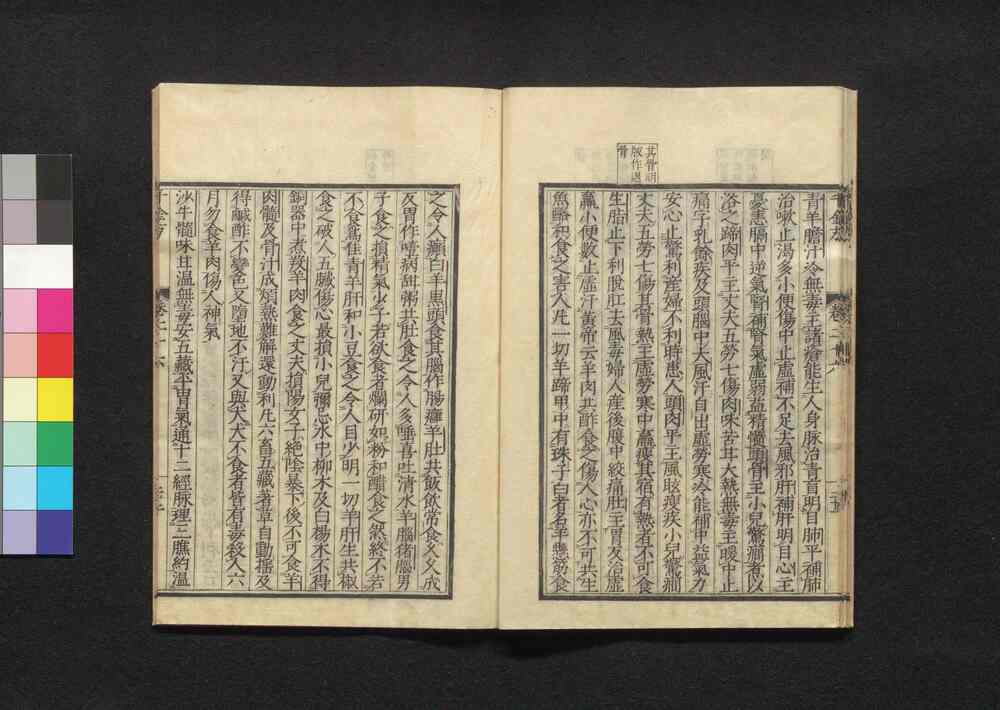 其骨明
版作過
骨
青羊膽汁冷無毒主諸瘡能生人身脉治青盲明目肺平補肺
治嗽止渴多小便傷中止虛補不足去風邪肝補肝明目心主
憂恚膈中逆氣腎補腎氣虛弱益精髓頭骨主小兒驚癇煮以
浴之蹄肉平主丈夫五勞七傷肉味苦甘大熱無毒主暖中止
痛字乳餘疾及頭腦中大風汗自出虛勞寒冷能補中益氣力
安心止驚利產婦不利時患人頭肉平主風眩瘦疾小兒驚癇
丈夫五勞七傷其骨熱主虛勞寒中羸瘦其宿有熱者不可食
生脂止下利脫肛去風毒婦人產後腹中絞痛肚主胃反治虛
羸小便數止虛汗黃帝云羊肉共醋食之傷人心亦不可共生
魚酪和食之害人凡一切羊蹄甲中有珠子白者名羊懸筋食
之令人癲白羊黑頭食其腦作腸癰羊肚共飯飲常食久久成
反胃作噎病甜粥共肚食之令人多唾喜吐清水羊腦猪腦男
子食之損精氣少子若欲食者爛研如粉和醋食之然終不若
不食爲佳青羊肝和小豆食之令人目少明一切羊肝生共椒
食之破人五臟傷心最損小兒彌忌水中柳木及白楊木不得
銅器中煮羖羊肉食之丈夫損陽女子絕陰暴下後不可食羊
肉髓及骨汁成煩熱難解還動利凡六畜五藏著草自動搖及
得鹹酢不變色又墮地不汙又與犬犬不食者皆有毒殺人六
月勿食羊肉傷人神氣
沙牛髓味甘溫無毒安五藏平胃氣通十二經脉理三膲約溫
千金方
卷二十六